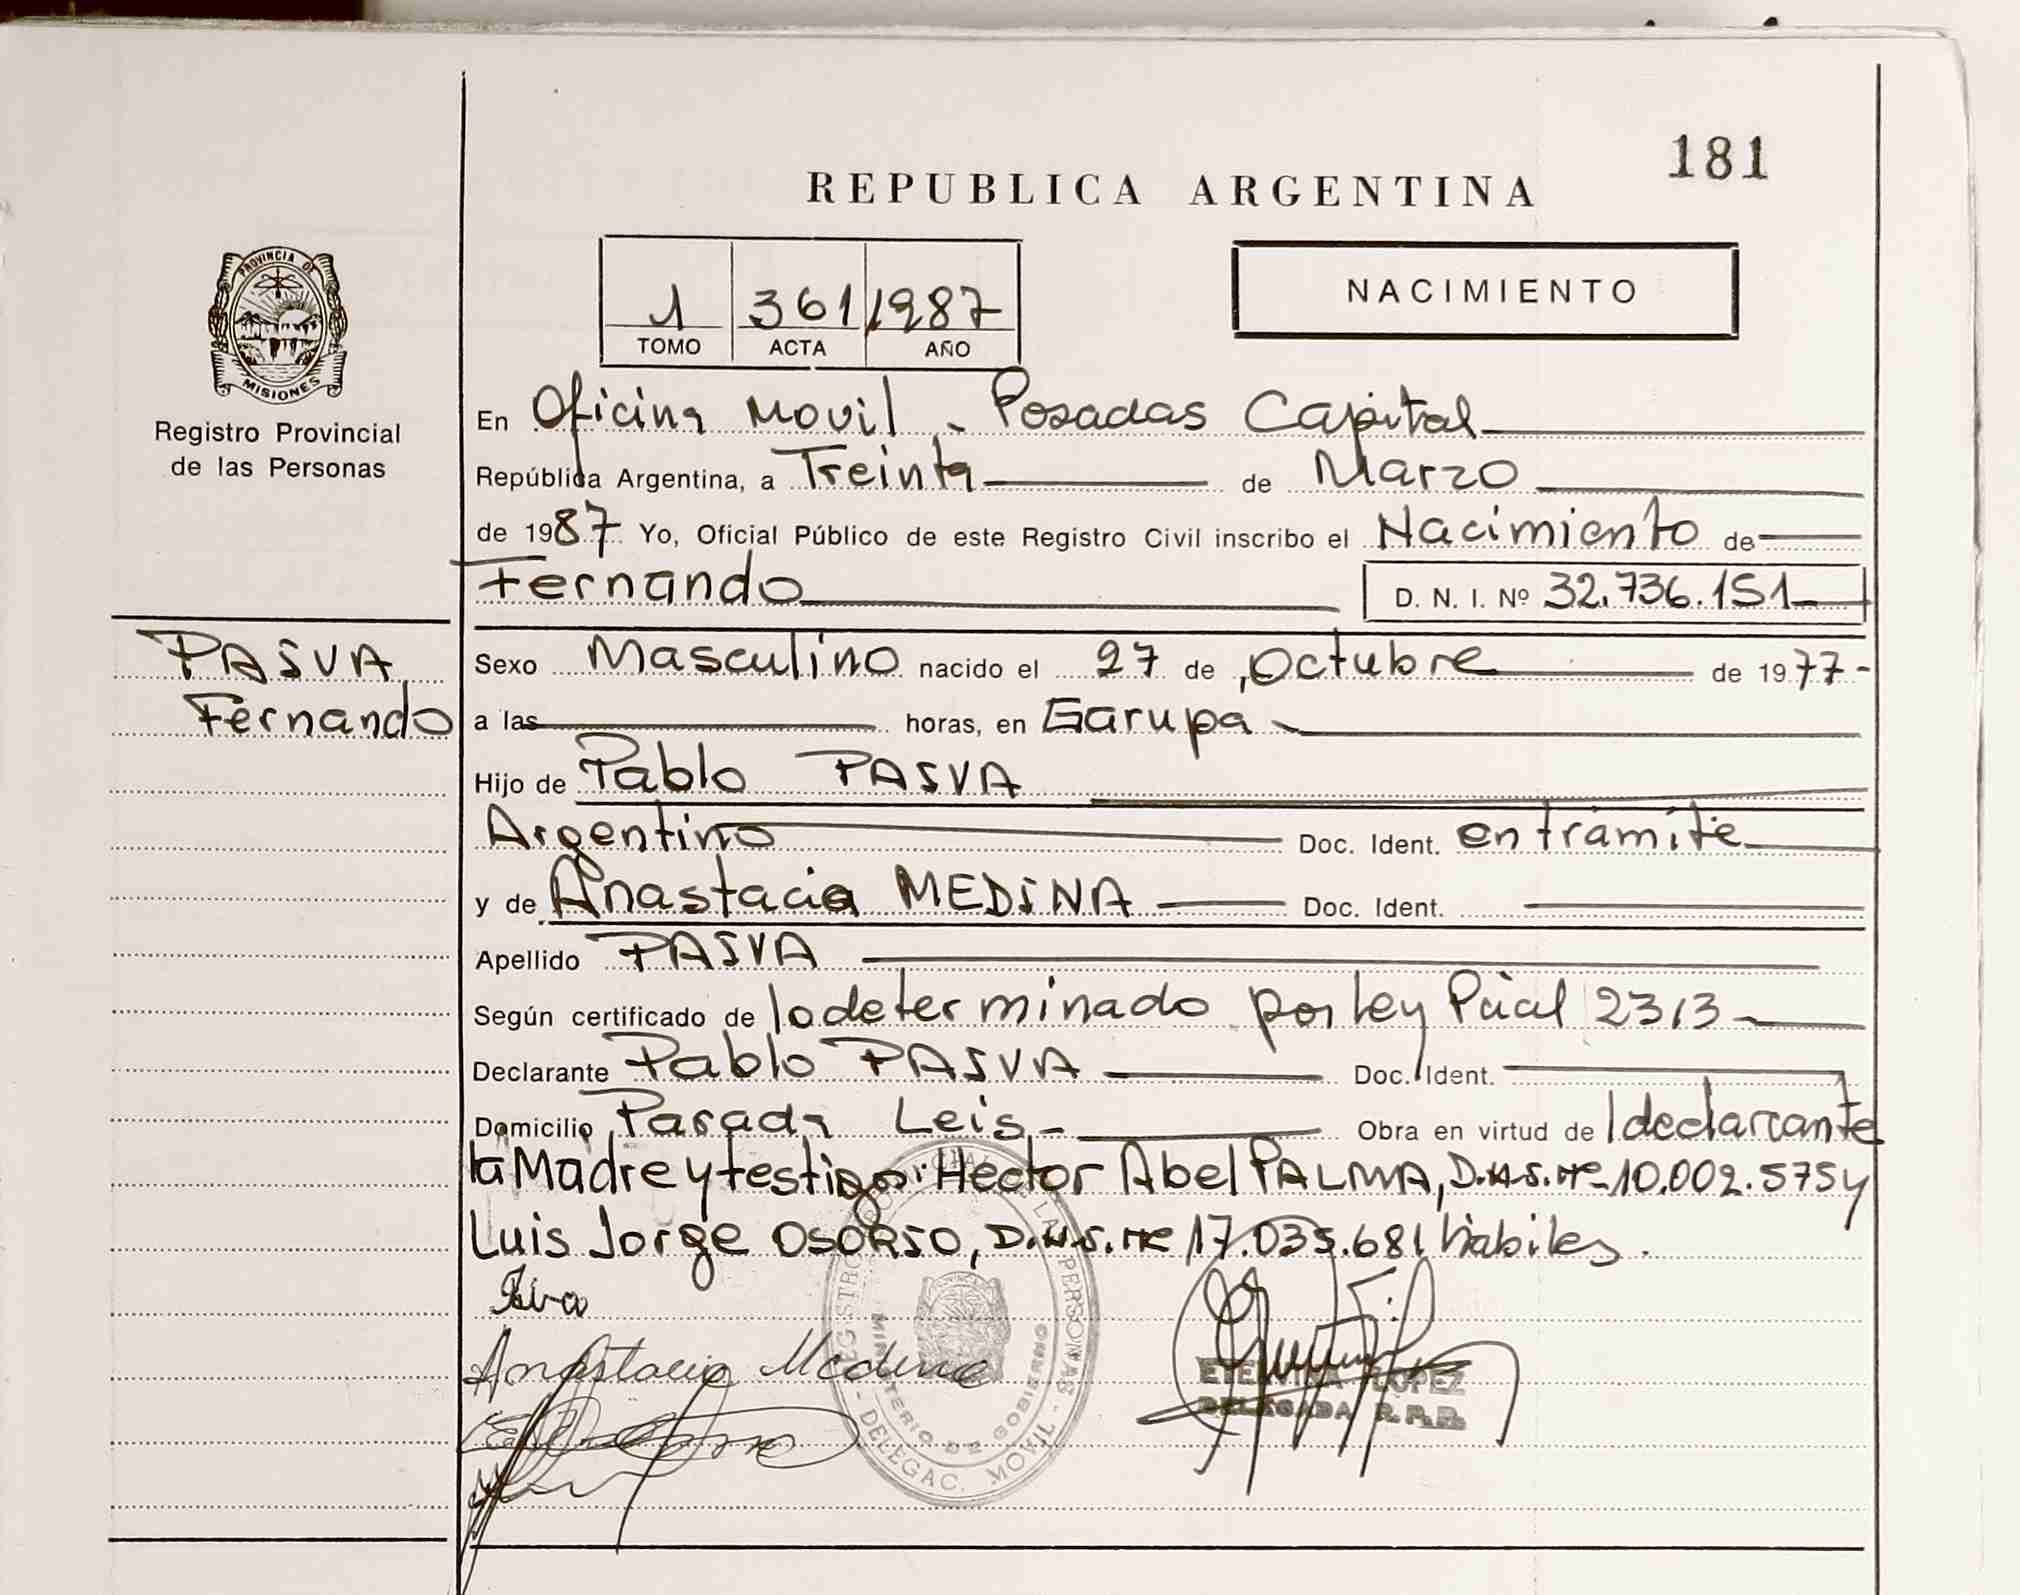 181
REPUBLICA ARGENTINA
PROVINCIA DE
MISIONES
Registro Provincial
de las Personas
1 361 1987
TOMO ACTA AÑO
NACIMIENTO
En Oficina Movil - Posadas Capital
República Argentina, a Treinta de Marzo
de 1987 Yo, Oficial Público de este Registro Civil inscribo el Nacimiento de
Fernando D. N. I. Nº 32.736.151
PASVA
Fernando
Sexo Masculino nacido el 27 de Octubre de 1977-
a las horas, en Garupa
Hijo de Pablo PASVA
Argentino Doc. Ident. en trámite
y de Anastacia MEDINA Doc. Ident.
Apellido PASVA
Según certificado de lo determinado por Ley Pcial 2313
Declarante Pablo PASVA Doc. Ident.
Domicilio Parada Leis Obra en virtud de declarante
la Madre y testigos: Hector Abel PALMA, D.N.I. Nº 10.002.575 y
Luis Jorge OSORIO, D.N.I. Nº 17.035.681 hábiles.
Anastacia Medina
ETELVINA LOPEZ
DELEGADA R.P.P.
REGISTRO PROVINCIAL DE LAS PERSONAS
MINISTERIO DE GOBIERNO
- DELEGAC. MOVIL -